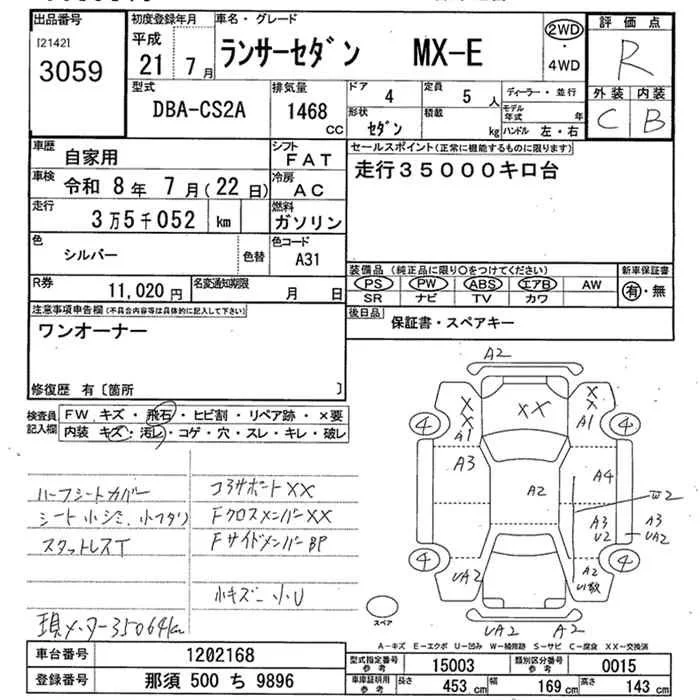 出品番号
[2142]
3059
初度登録年月
平成
21 7月
車名・グレード
ランサーセダン MX-E
2WD
・
4WD
評価点
R
外装 内装
C B
型式
DBA-CS2A
排気量
1468
CC
ドア
4
定員
5人
形状
セダン
積載
kg
ディーラー・並行
モデル年式 年
ハンドル 左・右
車歴
自家用
シフト
FAT
車検
令和 8年 7月(22日)
冷房
AC
走行
3万5千052 km
燃料
ガソリン
色
シルバー
色替
色コード
A31
セールスポイント(正常に機能するものに限ります)
走行35000キロ台
R券
11,020円
名変通知期限
月 日
装備品(純正品に限り○をつけてください)
PS PW ABS エアB AW
SR ナビ TV カワ
新車保証書
有・無
後日品
保証書・スペアキー
注意事項申告欄(不具合内容等は具体的に記入して下さい)
ワンオーナー
修復歴 有〔箇所 〕
検査員記入欄
FW キズ・飛石・ヒビ割・リペア跡・×要
内装 キズ・汚レ・コゲ・穴・スレ・キレ・破レ
ハーフシートカバー
シート小シミ、小ヘタリ
スタットレスT
現メーター35064km
コアサポートXX
FクロスメンバーXX
FサイドメンバーBP
小キズ 小U
A2
X X
X X
XX
X
4 4
A1 A1
A3 A4
A2
W2
A3 A3
U2 UA2
4 4
UA2 A2
U1数
UA2 A2
スペア
A-キズ E-エクボ U-凹み W-補修跡 S-サビ C-腐食 XX-交換済
車台番号
1202168
登録番号
那須 500 ち 9896
型式指定番号
参考
15003
類別区分番号
参考
0015
車庫証明用
参考
長さ 453 cm
幅 169 cm
高さ 143 cm